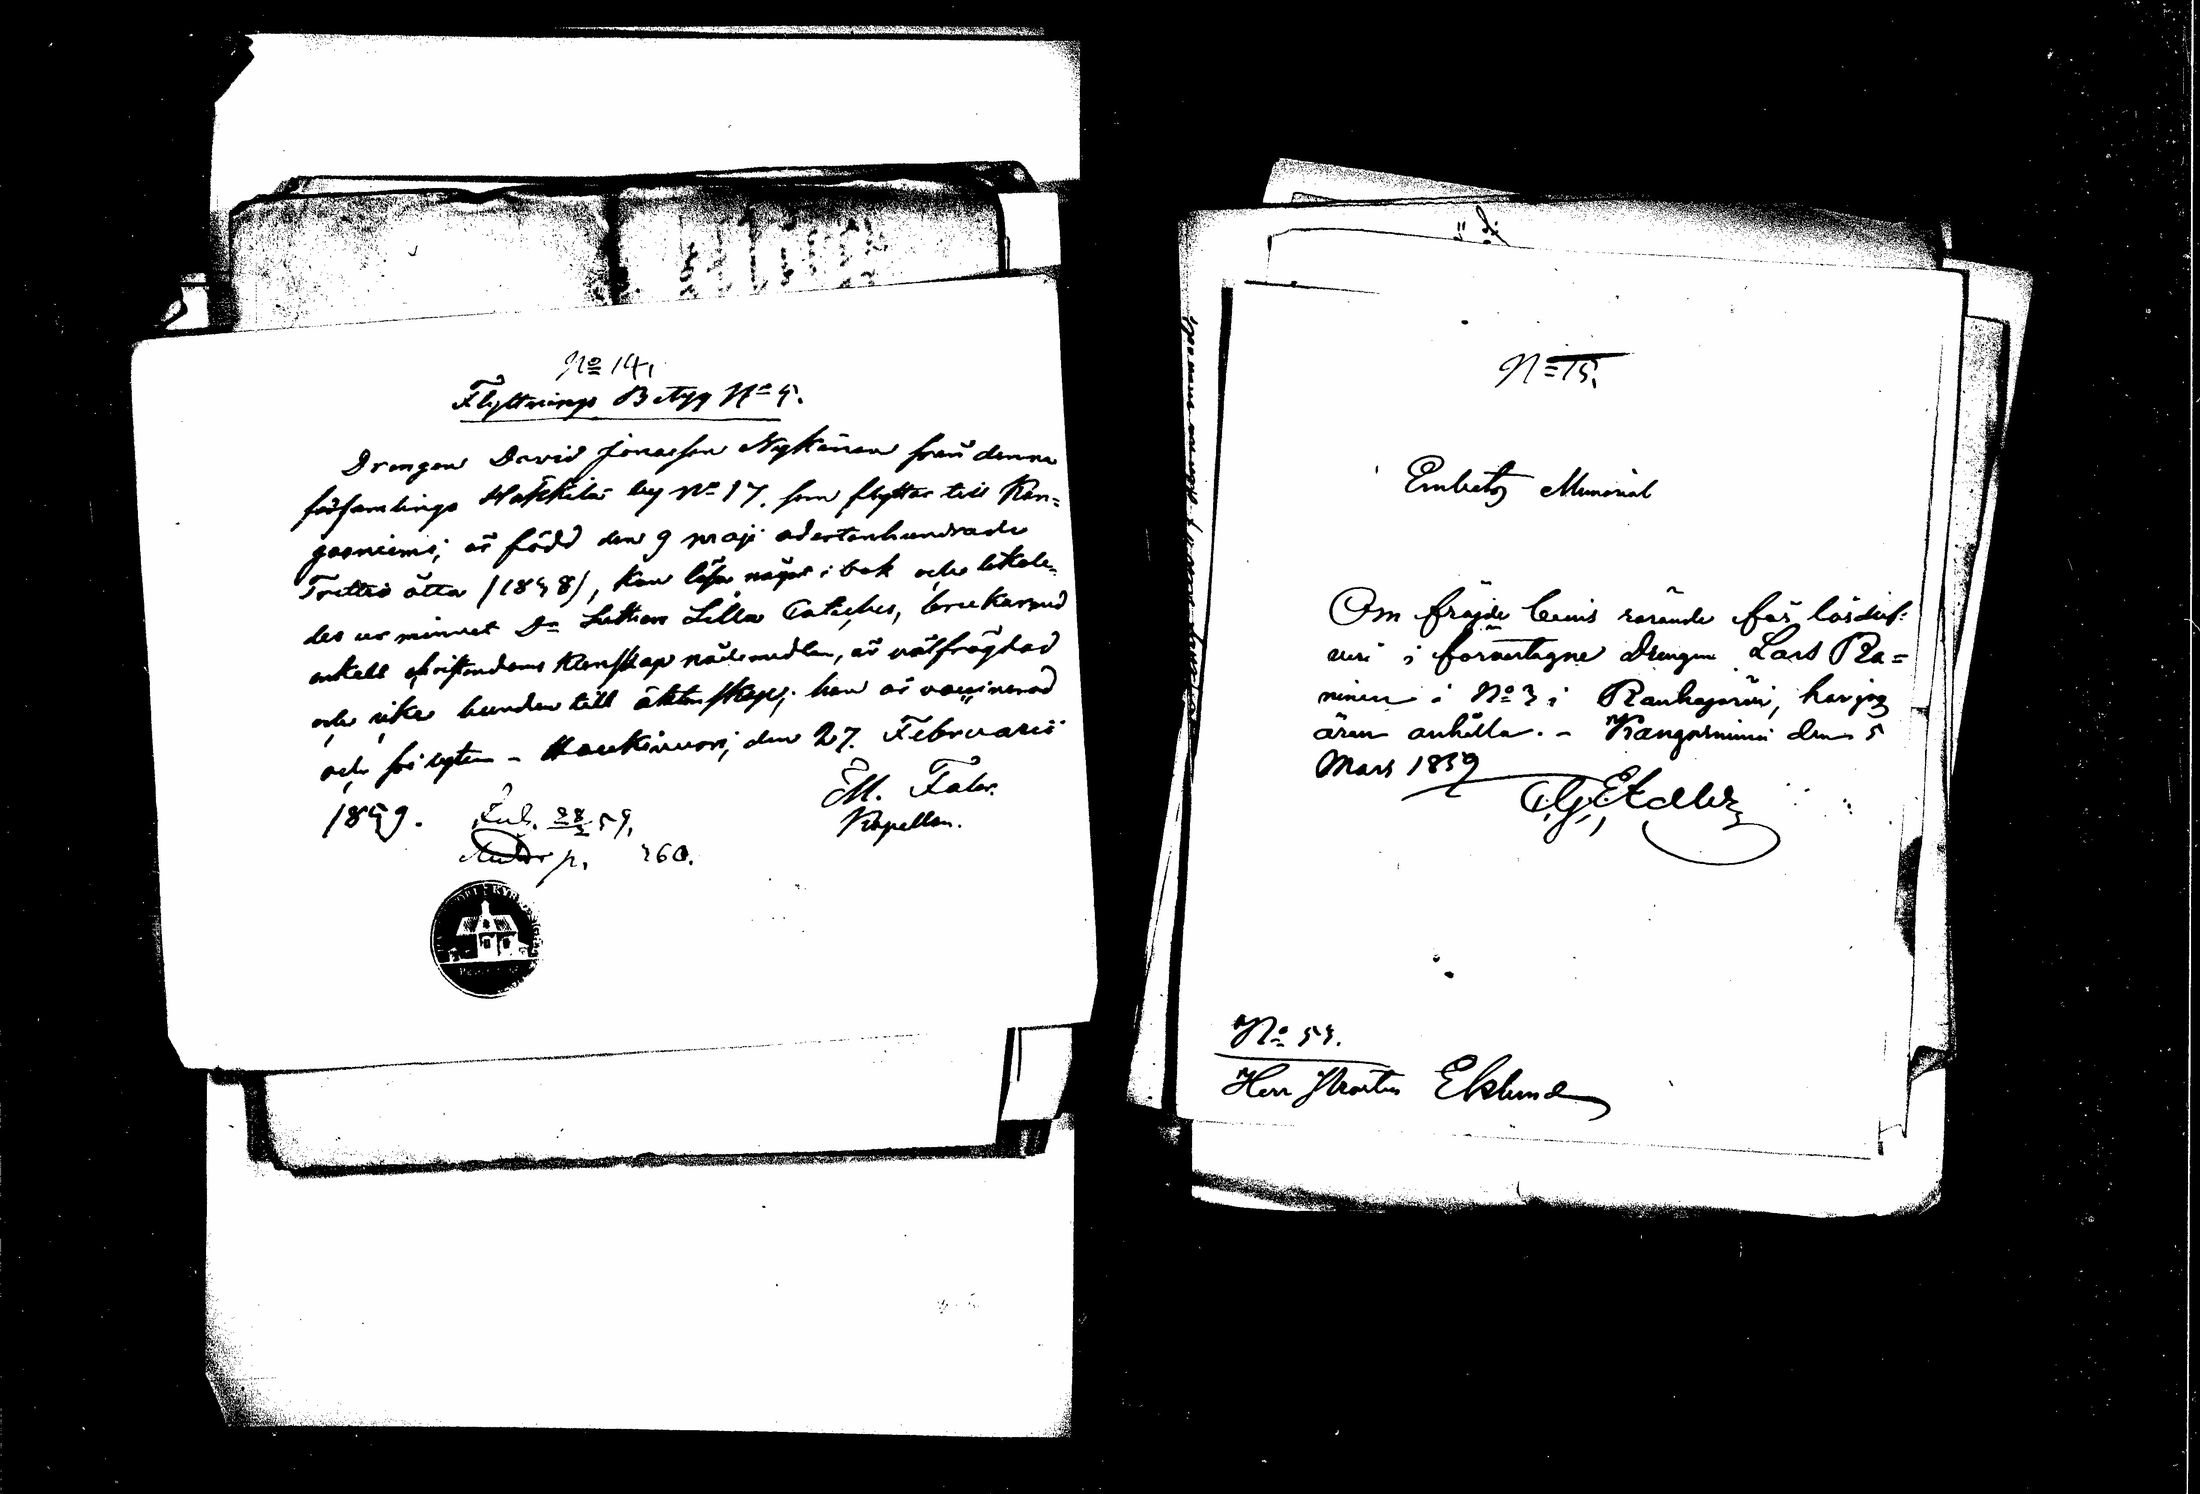 No 14.
Flyttnings Betyg No 5.
Drengen David Jonasson Nykänen från denna
församlings Häkkilä by No 17. som flyttar till Kan=
gasniemi, är född den 9 maji adertonhundrade
Trettio åtta (1838), kan läsa något i bok och likale-
des ur minnet Dr Luthers Lilla Catches, brukar med
enkell christendoms kunskap nådemedlen, är välfrägdad
och icke bunden till äktenskap; han är vaccinerad
och för lyten - Haukivuori, den 27. Februarii
1859.
M. Faler.
Kapellan.
Inl. 28/2 59.
p. 260.
No 15.
Embets Memorial
Om frejde bevis rörande för lösdrif-
veri i förvartagne Drengen Lars Ra=
ninen i No 3 i Rauhajärvi, har jag
äran anhålla. - Kangasniemi den 5
Mars 1859
No 53.
Herr Prosten Eklund